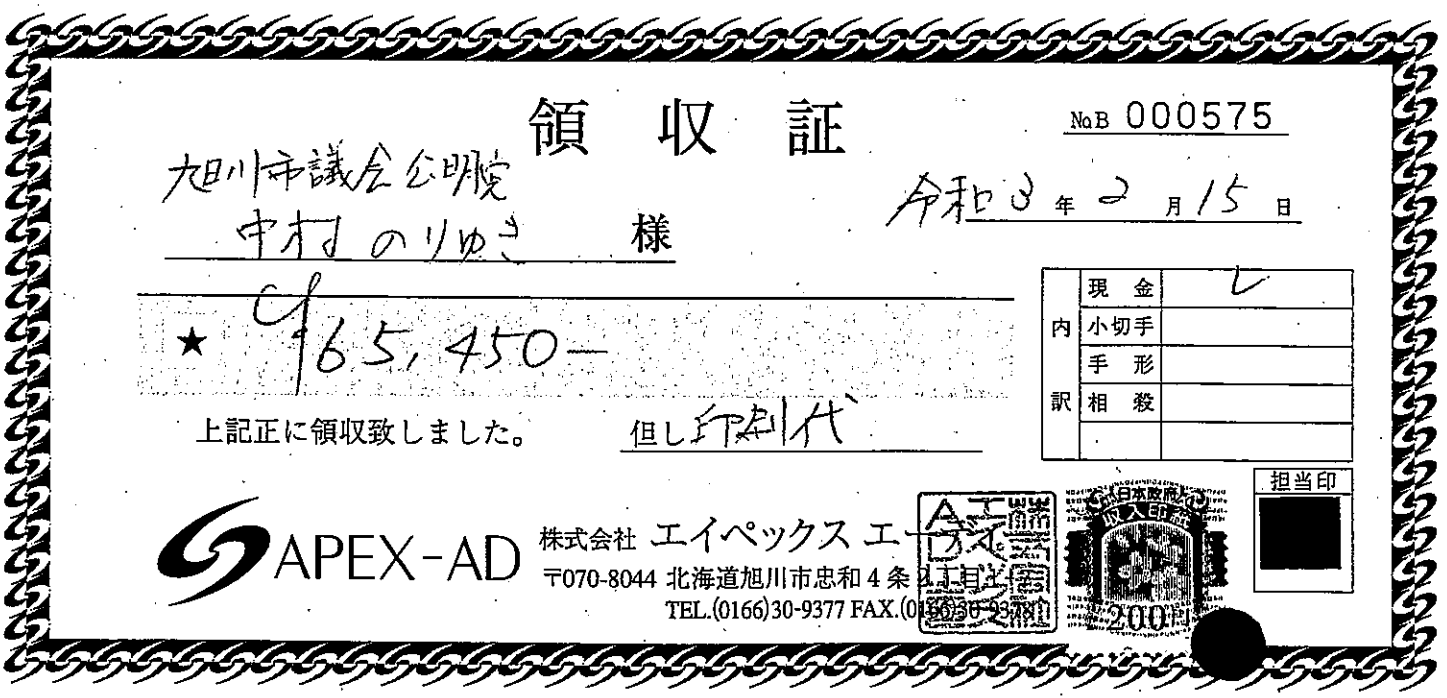 領収証
NoB 000575
旭川市議会公明党
中村のりゆき 様
令和3年2月15日
★ ¥165,450-
上記正に領収致しました。
但し印刷代
内訳
現金 レ
小切手
手形
相殺
担当印
APEX-AD
株式会社 エイペックス エーディ
〒070-8044 北海道旭川市忠和4条
TEL.(0166)30-9377 FAX.(0166)30-9378
日本政府
収入印紙
200円